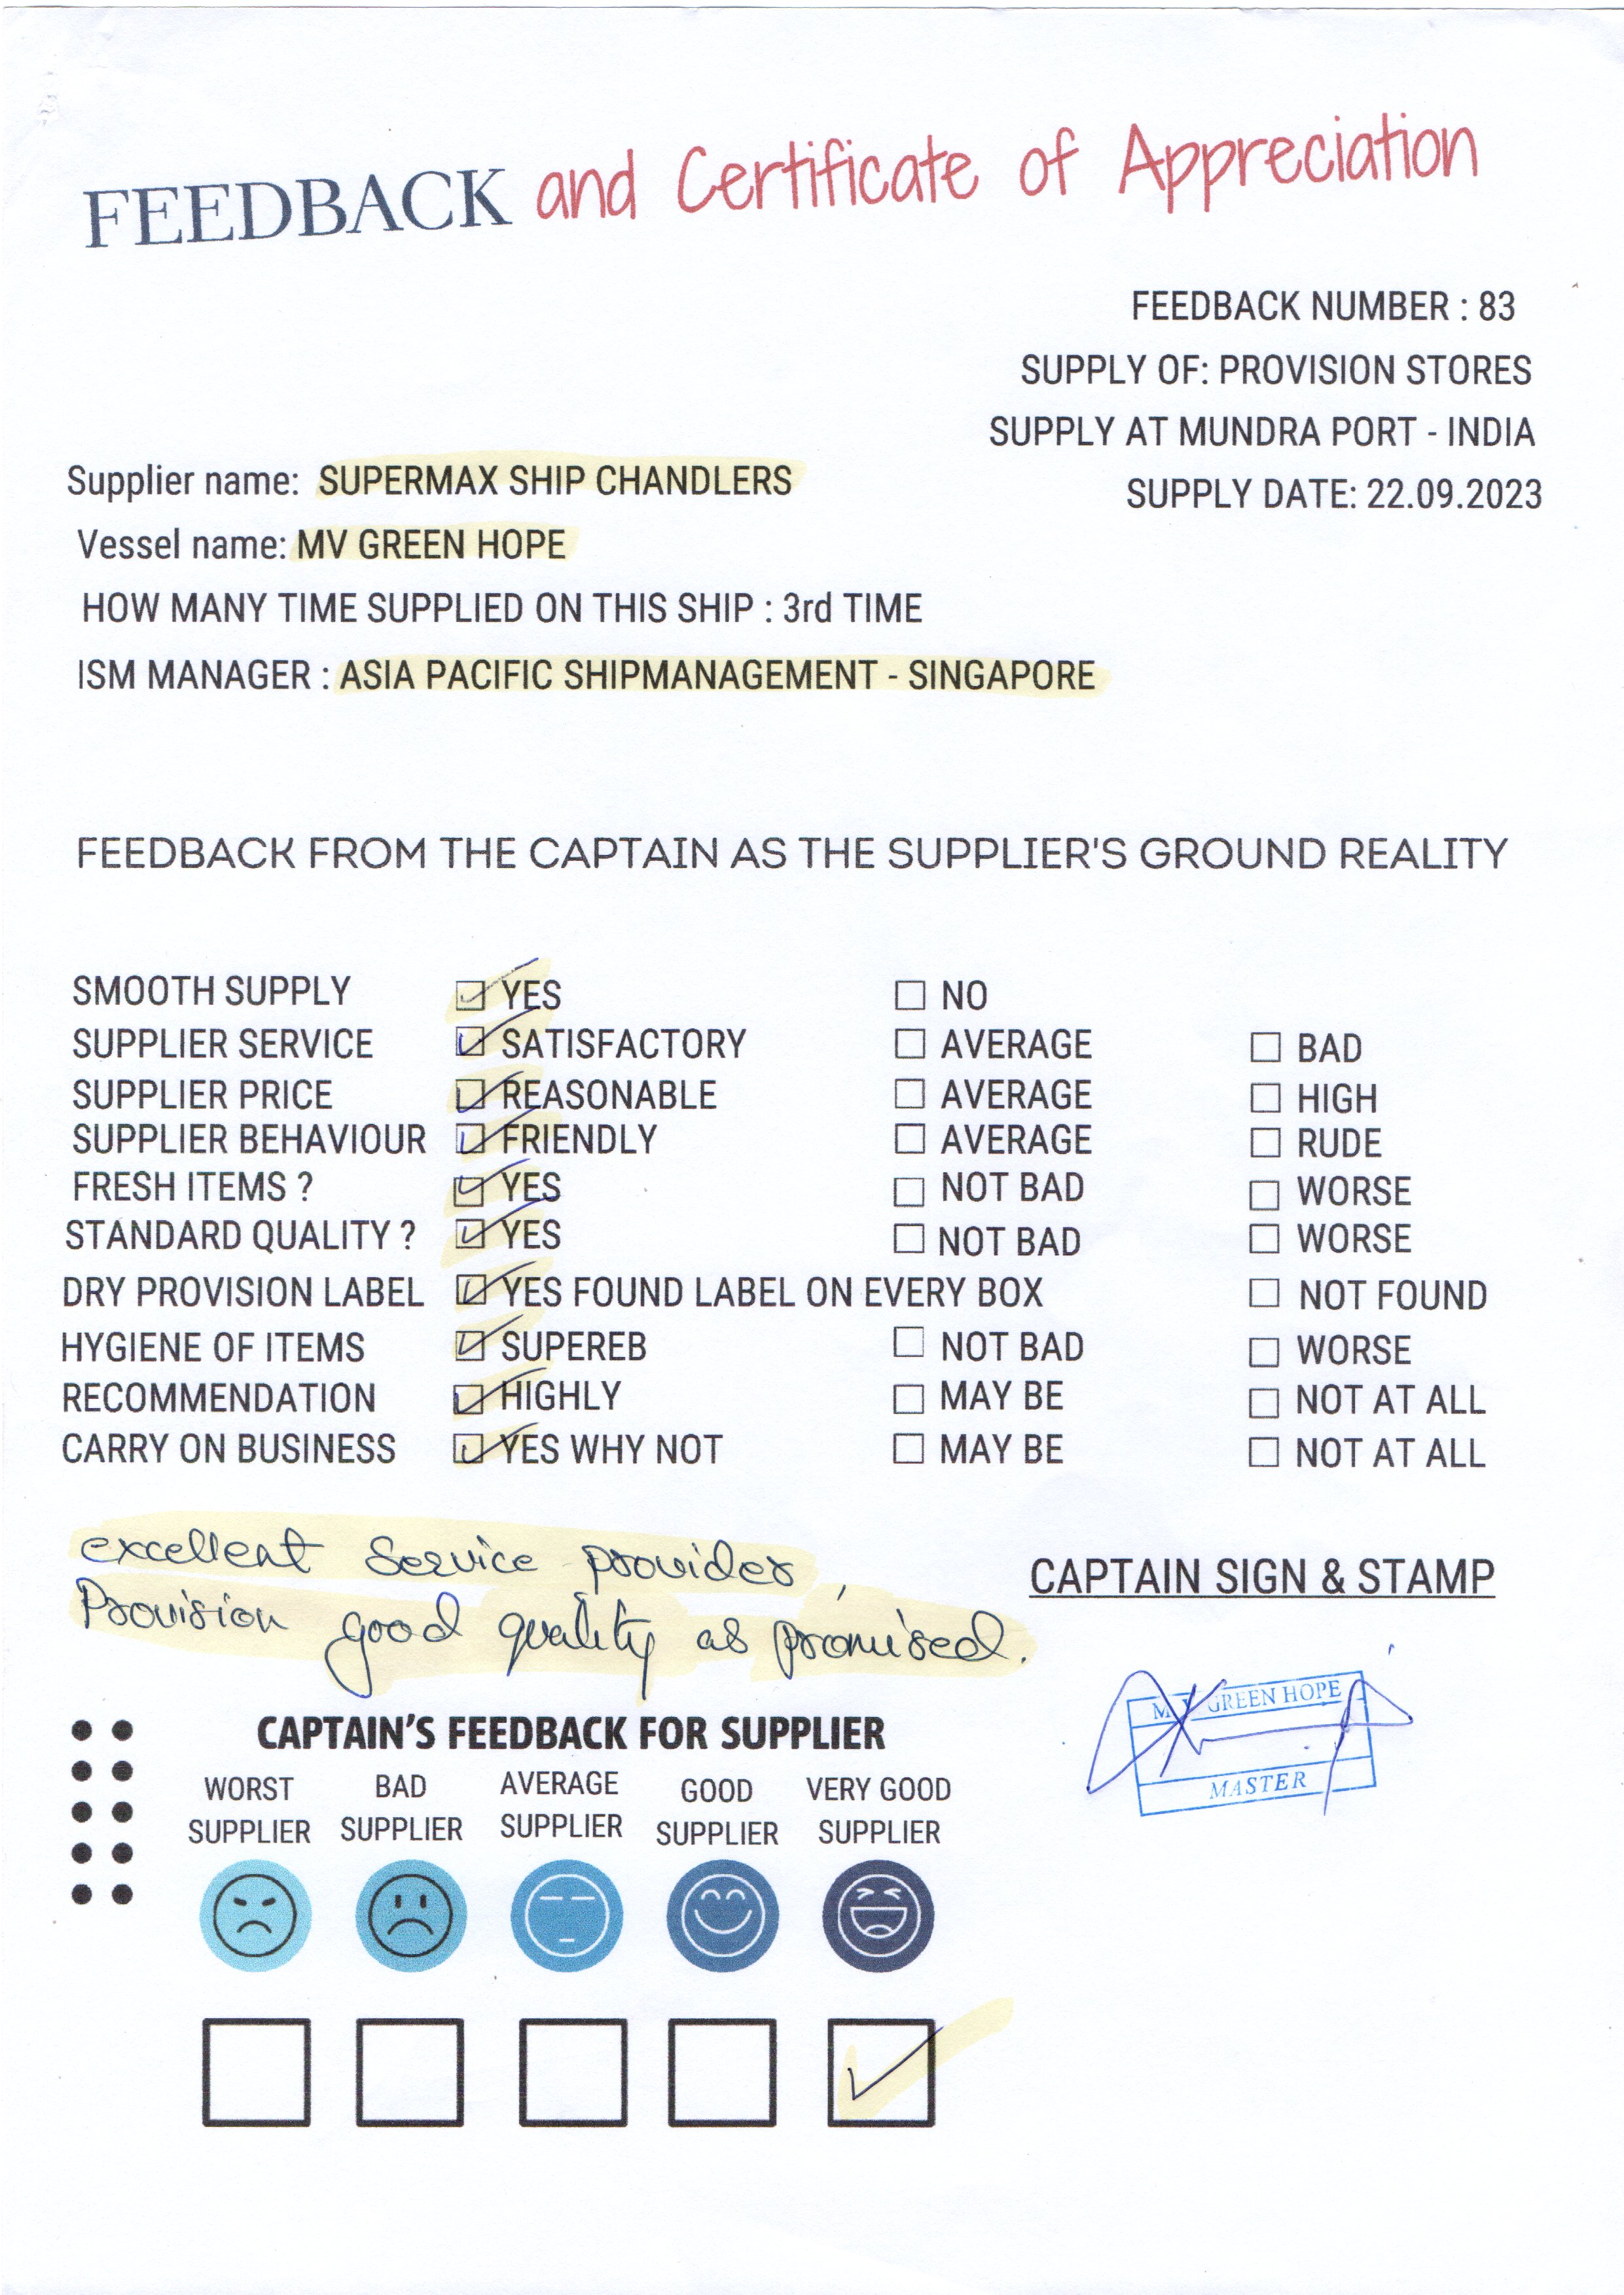 FEEDBACK and Certificate of Appreciation
FEEDBACK NUMBER : 83
SUPPLY OF: PROVISION STORES
SUPPLY AT MUNDRA PORT - INDIA
SUPPLY DATE: 22.09.2023
Supplier name: SUPERMAX SHIP CHANDLERS
Vessel name: MV GREEN HOPE
HOW MANY TIME SUPPLIED ON THIS SHIP : 3rd TIME
ISM MANAGER : ASIA PACIFIC SHIPMANAGEMENT - SINGAPORE
FEEDBACK FROM THE CAPTAIN AS THE SUPPLIER'S GROUND REALITY
SMOOTH SUPPLY YES NO
SUPPLIER SERVICE SATISFACTORY AVERAGE BAD
SUPPLIER PRICE REASONABLE AVERAGE HIGH
SUPPLIER BEHAVIOUR FRIENDLY AVERAGE RUDE
FRESH ITEMS ? YES NOT BAD WORSE
STANDARD QUALITY ? YES NOT BAD WORSE
DRY PROVISION LABEL YES FOUND LABEL ON EVERY BOX NOT FOUND
HYGIENE OF ITEMS SUPEREB NOT BAD WORSE
RECOMMENDATION HIGHLY MAY BE NOT AT ALL
CARRY ON BUSINESS YES WHY NOT MAY BE NOT AT ALL
excellent Service provider,
Provision good quality as promised.
CAPTAIN SIGN & STAMP
M.V GREEN HOPE
MASTER
CAPTAIN'S FEEDBACK FOR SUPPLIER
WORST SUPPLIER
BAD SUPPLIER
AVERAGE SUPPLIER
GOOD SUPPLIER
VERY GOOD SUPPLIER